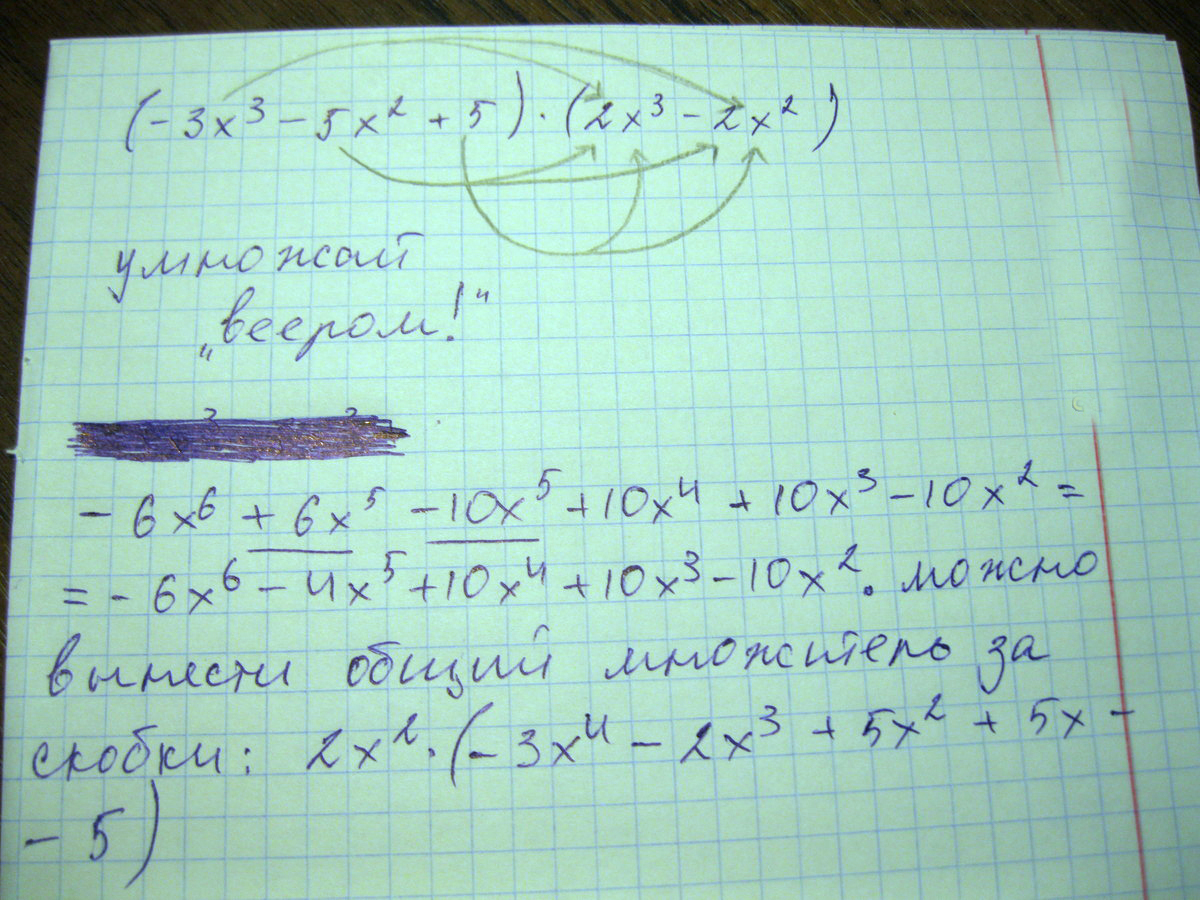 (-3x³ - 5x² + 5) · (2x³ - 2x²)
умножай
„веером!“
-6x⁶ + 6x⁵ -10x⁵ +10x⁴ + 10x³ -10x² =
= - 6x⁶ - 4x⁵ +10x⁴ + 10x³ - 10x². можно
вынести общий множитель за
скобки: 2x² · (-3x⁴ - 2x³ + 5x² + 5x -
- 5)